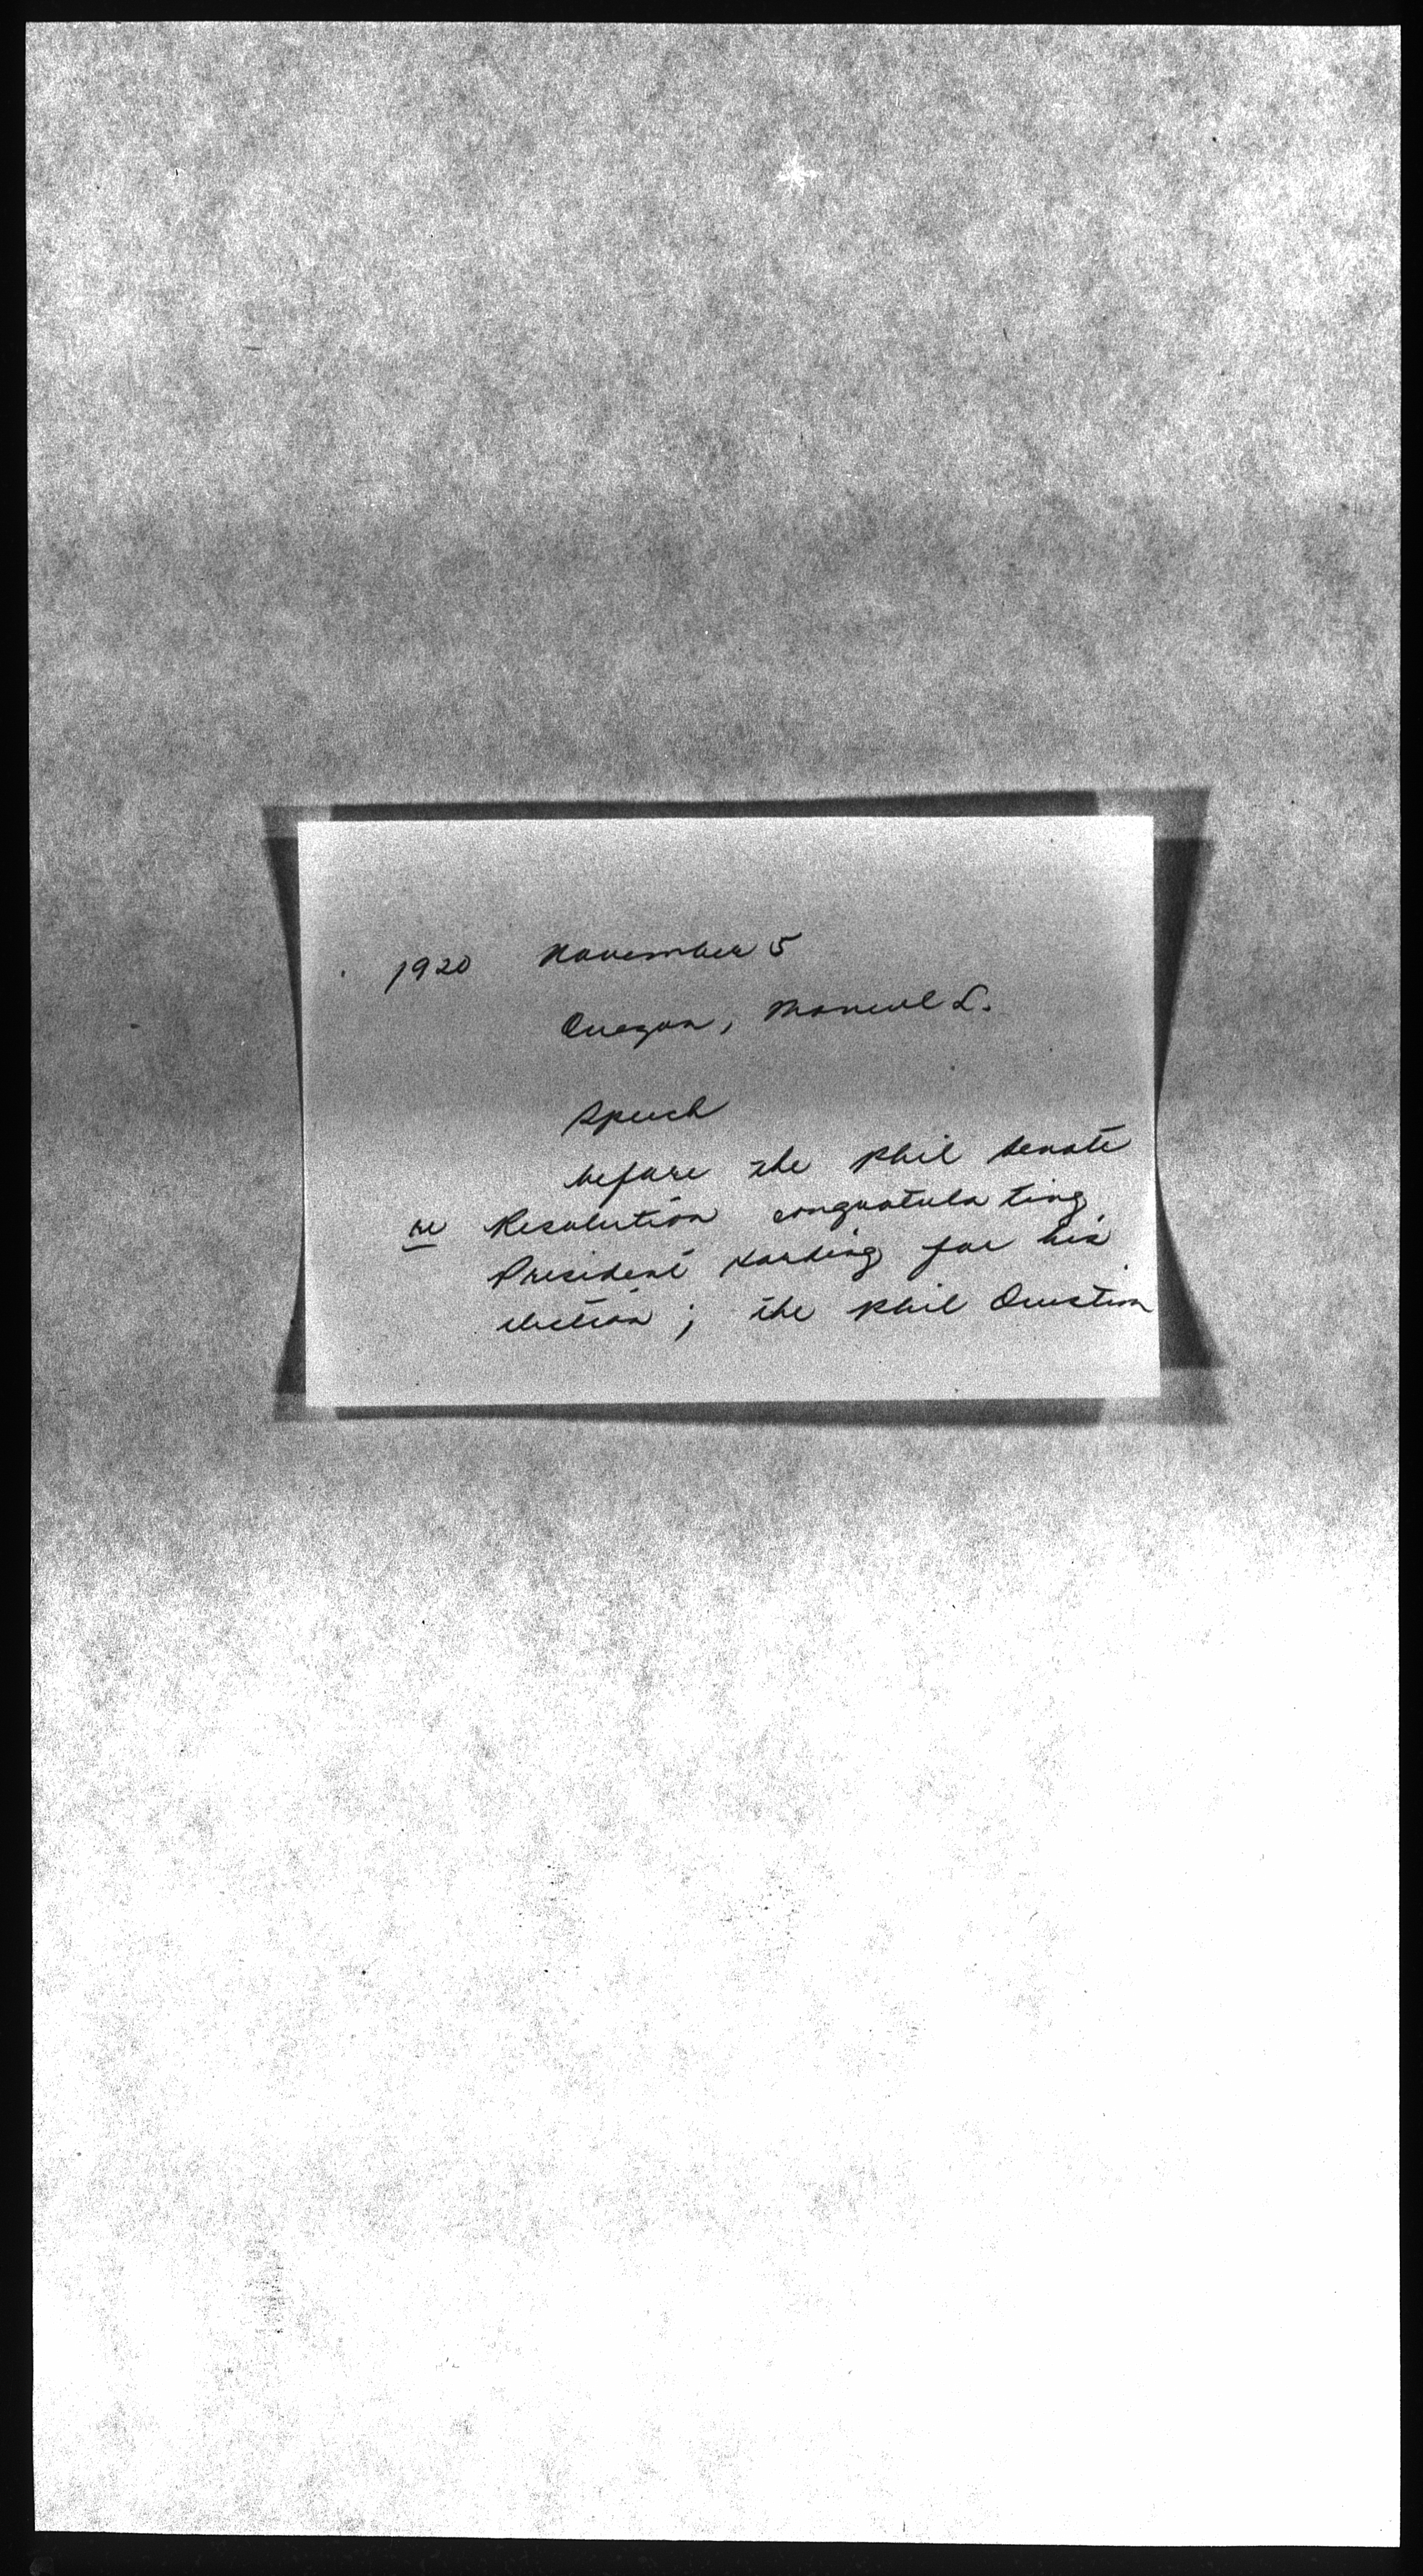 1920 November 5
Quezon, Manuel L.
Speech
before the Phil Senate
re Resolution congratulating
President Harding for his
election; the Phil Question